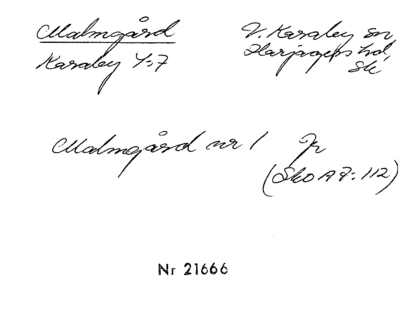 Malmgård V. Karaby sn,
Karaby 4:7 Harjagers hd,
Sk
Malmgård nr 1 Jr
(Sko A 7:112)
Nr 21666